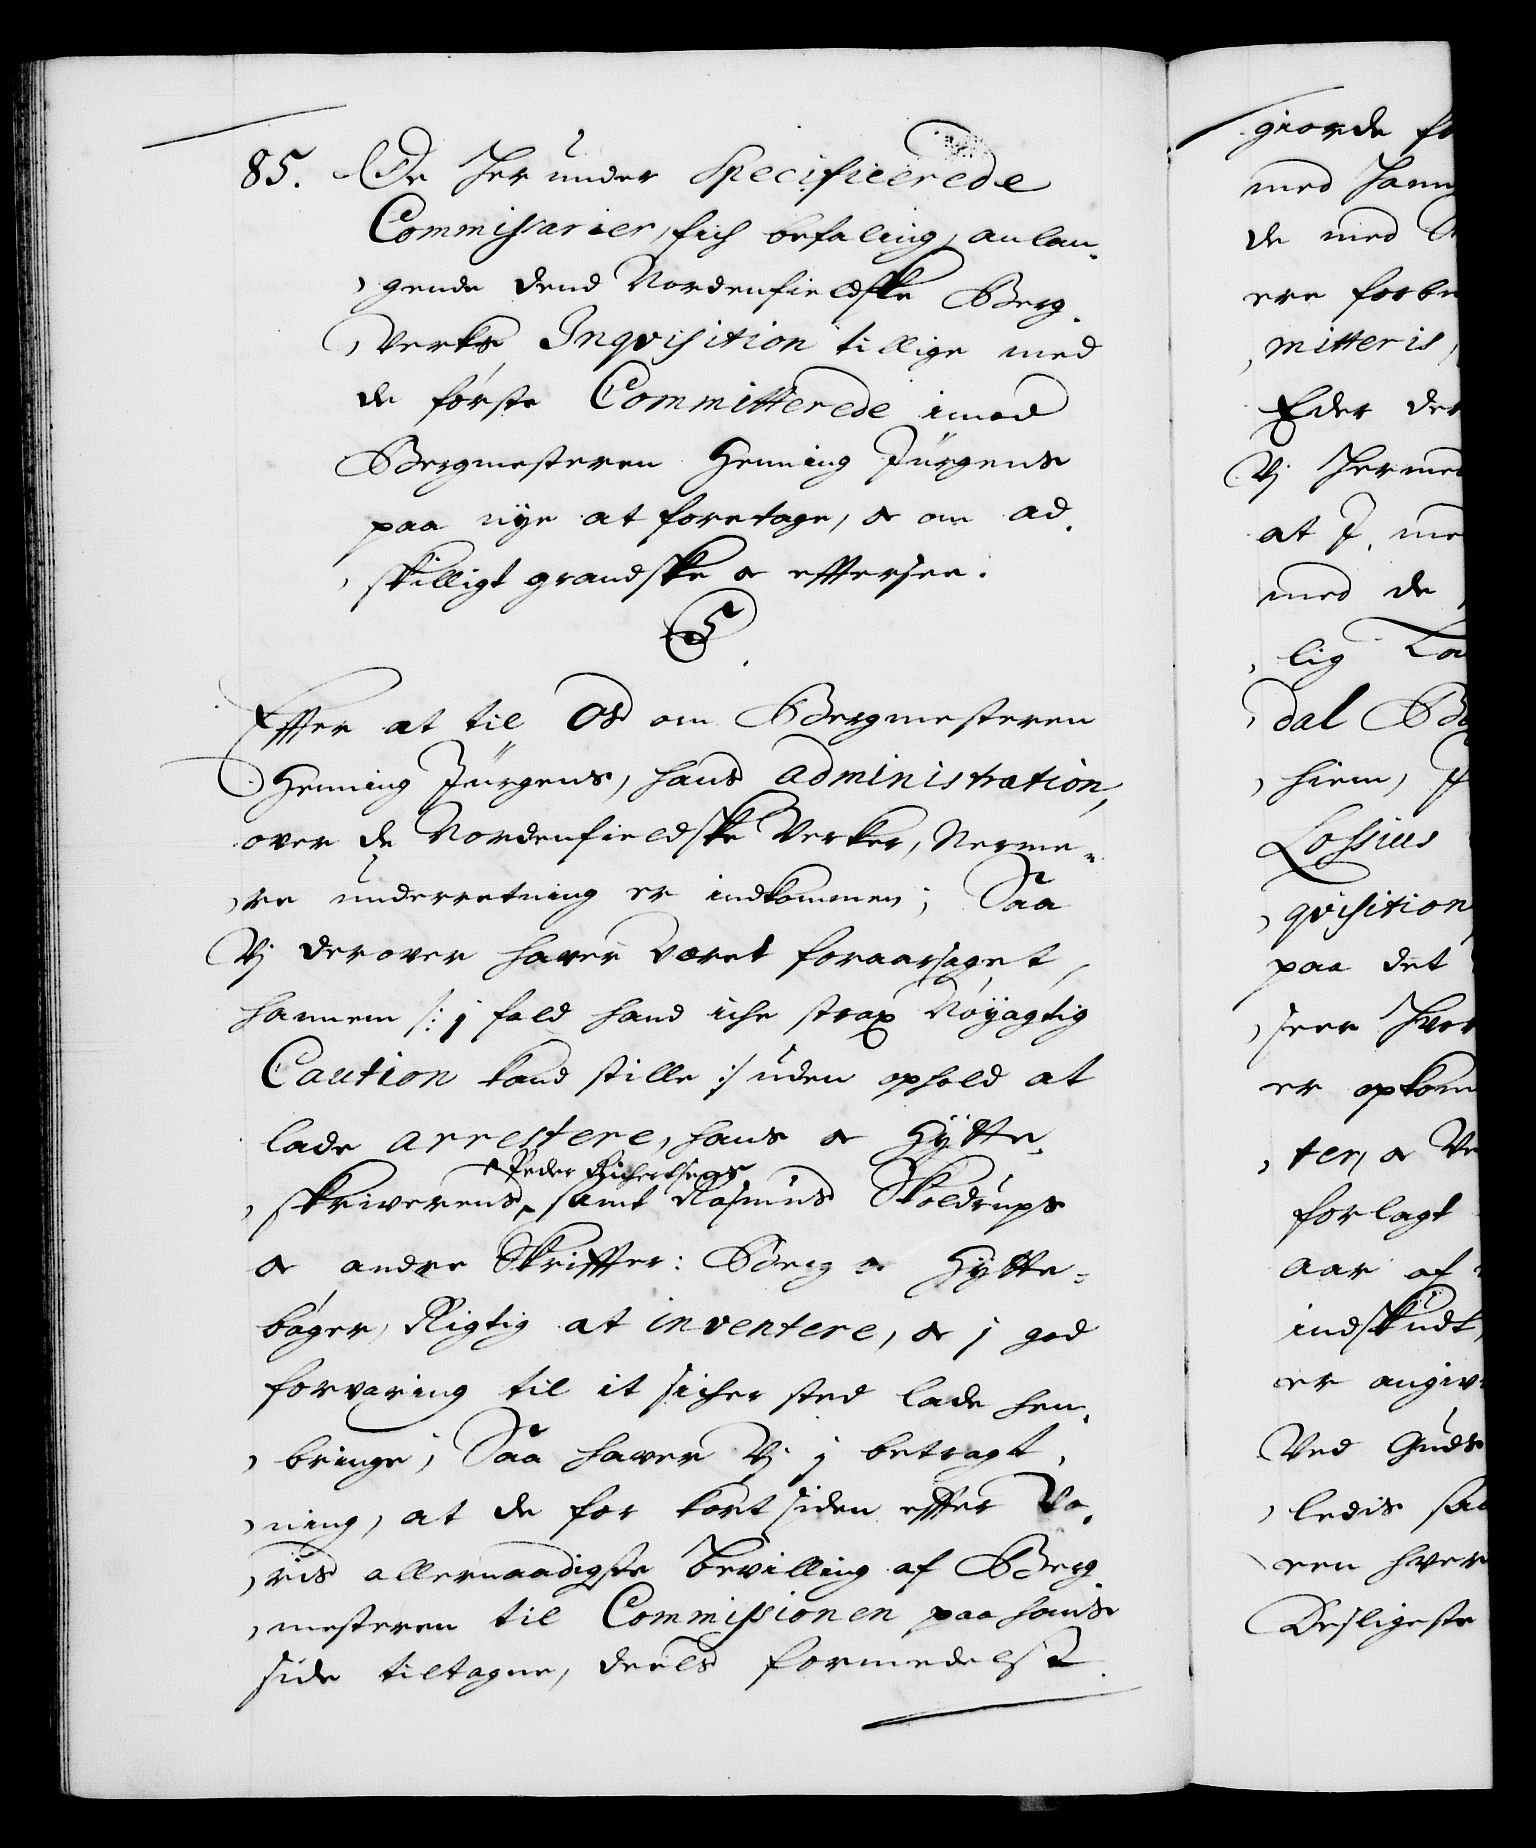 85. De Her under Specificerede
Commissarier, fich befaling, anlan-
gende dend Nordenfieldske Berg-
Verks Inqvisition tillige med
de første Committerede imod
Bergmesteren Henning Jürgens
paa nye at foretage, & om ad-
skilligt grandske & efftersee.
C5
Effter at til Os om Bergmesteren
Henning Jürgens, hans administration,
over de Nordenfieldske Verker, Nerme-
re underretning er indkommen; Saa
Vj derover haver været foraarsaget,
hannem /: j fald hand iche strax Nøyagtig
Caution kand stille :/ uden ophold at
lade arrestere, hans & Hÿtte-
& Peder Richertsens
skriverens, samt Rasmus Skoldrups
& andre Skriffter: Berg & Hÿtte-
bøger, Rigtig at inventere, & j god
forvaring til it sicher sted lade hen-
bringe; Saa haver Vj j betragt-
ning, at de for kort siden effter Vo-
ris allernaadigste bevilling af Berg-
mesteren til Commissionen paa hans
side tiltagne, deels formedelst
giorde fo
med Hann
de med
ere forbe
mitteris,
Eder der
Vj Hermed
at J, me
med de
lig
dal
hiem,
Lossius
qvisition
paa det
seer Hvor
er opkom
ter, & Ve
forlagt
aar af
indskudt,
er angiv
Ved Guds
ledis saa
een hver
Desligeste